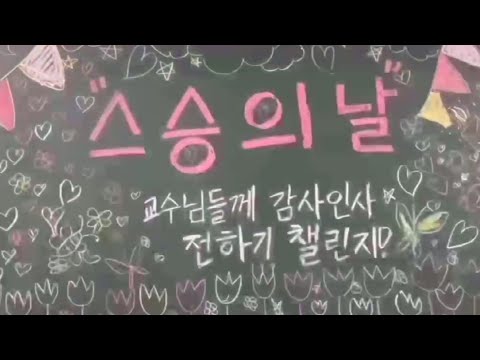 "스승의 날"
교수님들께 감사인사
전하기 챌린지!